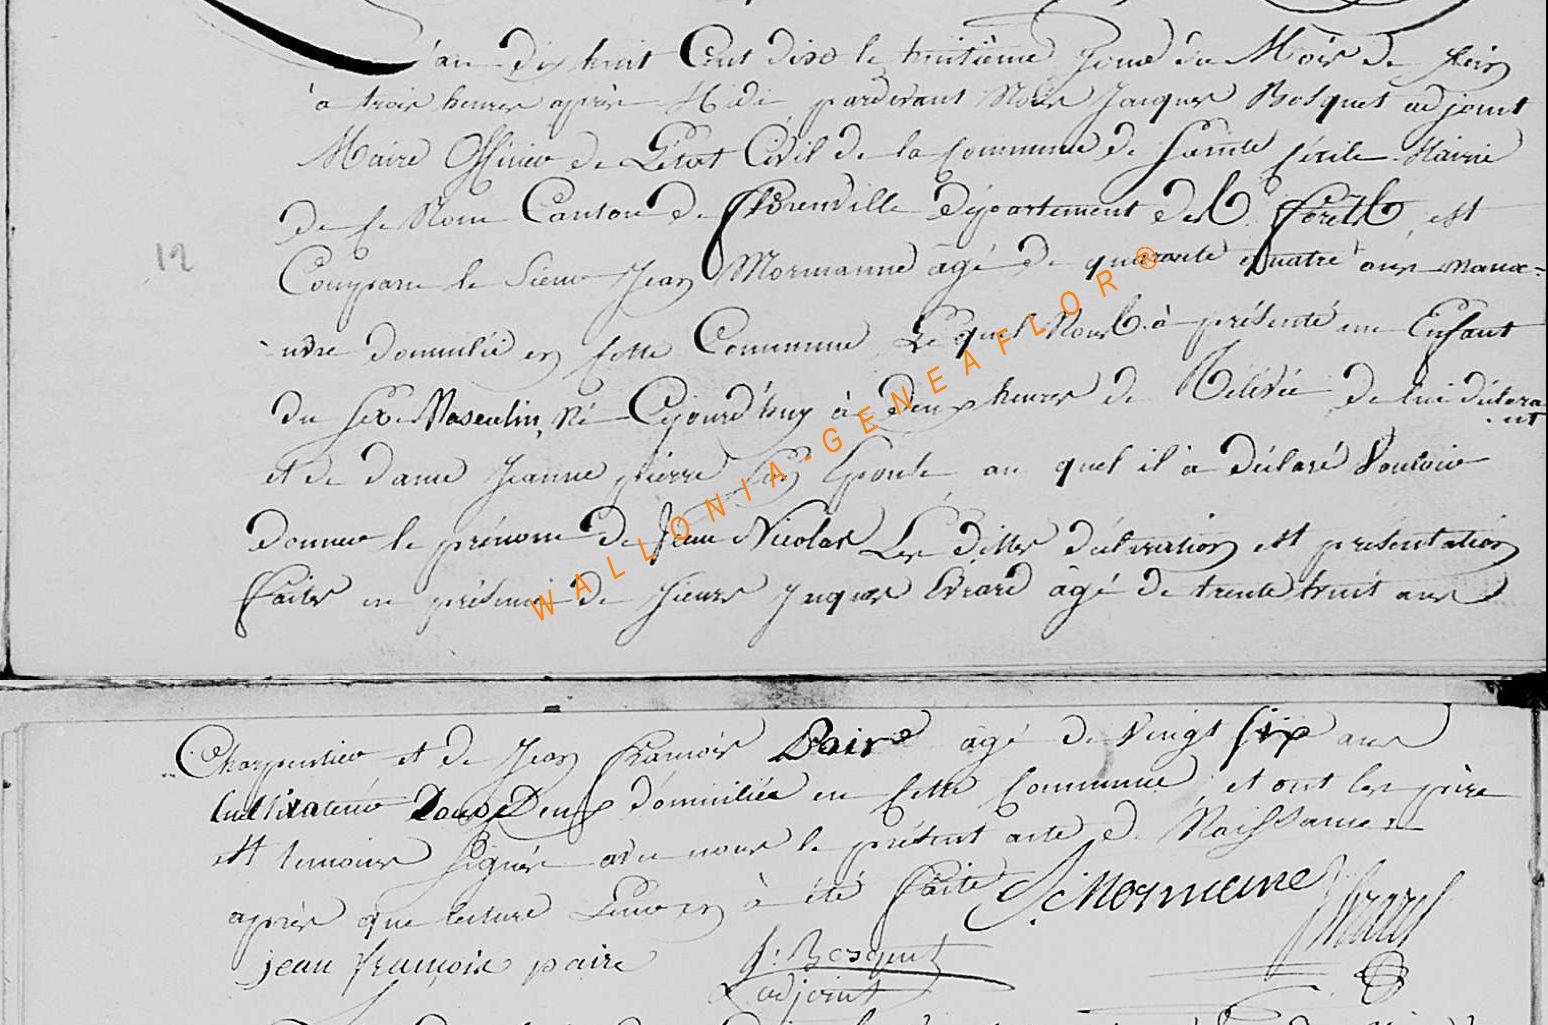 L'an dix huit Cent dix le huitième Jour du Mois de Juin
à trois heures après Midi pardevant Nous Jacques Bosquet adjoint
Maire Officier de L'Etat Civil de la Commune de Sainte Cécile Mairie
de Ce Nom Canton de Florenville département des Forêts, est
12
Comparu le Sieur Jean Mormanne âgé de quarante quatre ans manœ=
uvre domicilié en Cette Commune Le quel Nous à présenté un Enfant
du Sexe Masculin, Né Cejourd'huy à deux heures de Relevée de lui déclara
nt
et de dame Jeanne pierre Son Epouse au quel il à déclaré Vouloir
donner le prénom de Jean Nicolas Les dittes déclaration est présentation
Faites en présence de Sieurs Jaques Evrard âgé de trente huit ans
WALLONIA-GENEAFLOR®
Charpentier et de Jean François Paire âgé de Vingt Six ans
Cultivateur Tous Deux domiciliés en Cette Commune, et ont les père
est temoins Signés avec nous le présent acte de Naissance
après que lecture Leur en à été Faite J: Mormane
jean françois paire J: Bosquet
adjoint